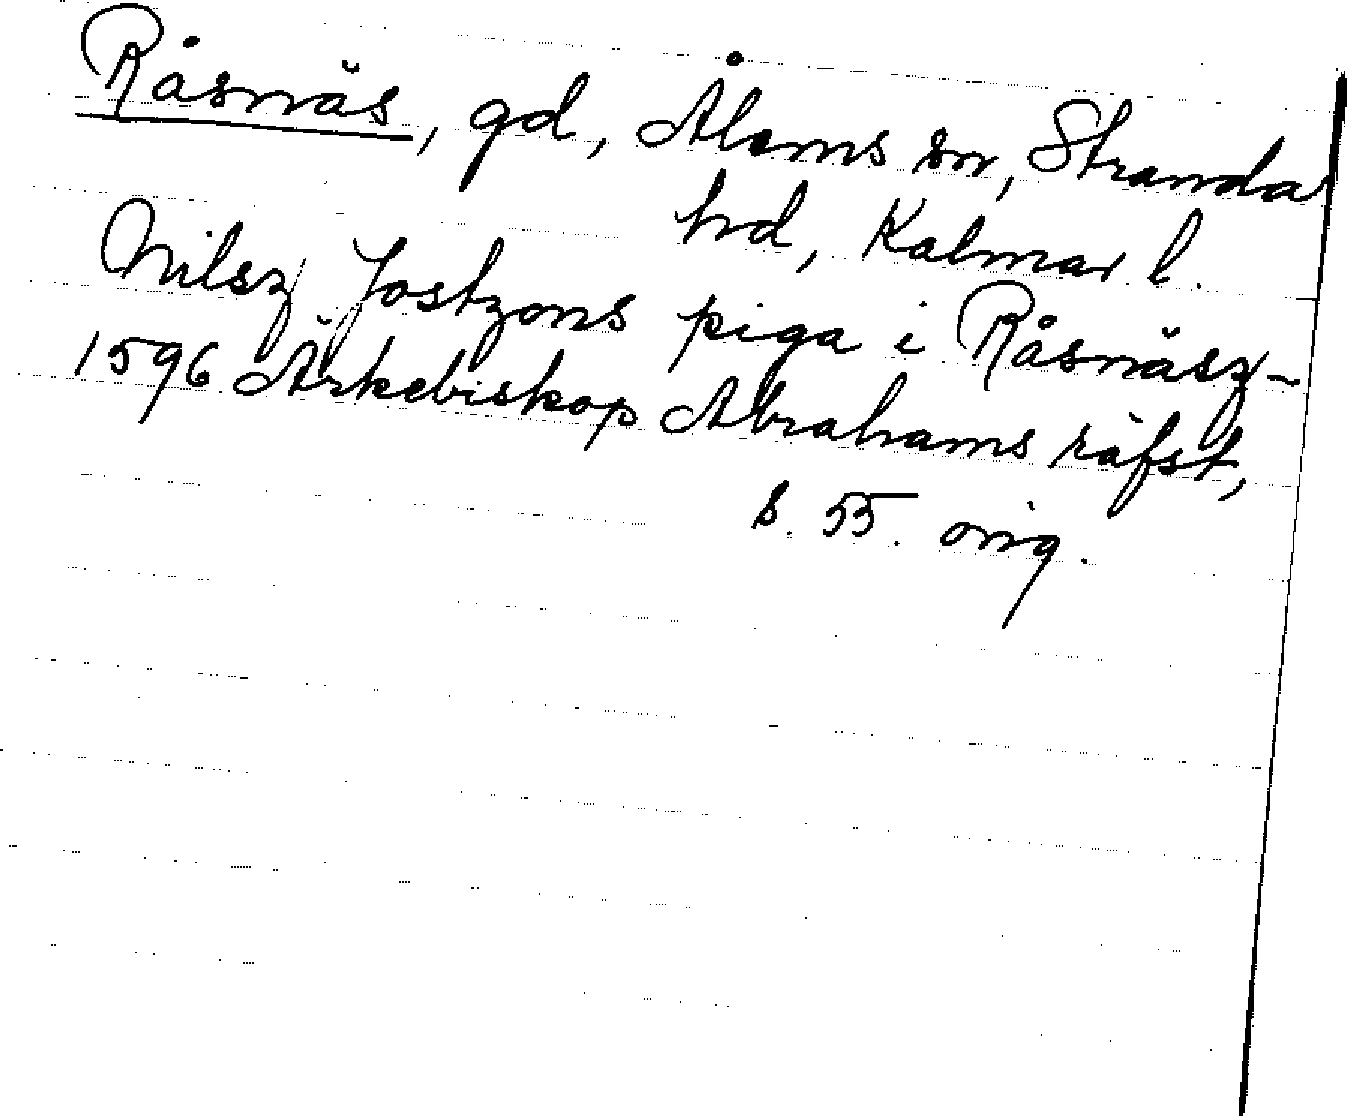 Råsnäs, gd, Ålems sn, Stranda
hd, Kalmar l.
Nilsz Jostzons piga i Råsnäsz-
1596 Ärkebiskop Abrahams räfst,
s. 55. orig.